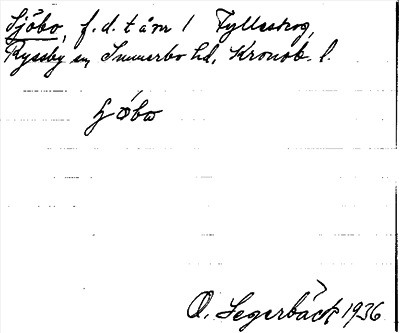 Sjöbo, f. d. t å nr 1 Fylleskog,
Ryssby sn, Sunnerbo hd, Kronob. l.
O. Segerbäck 1936